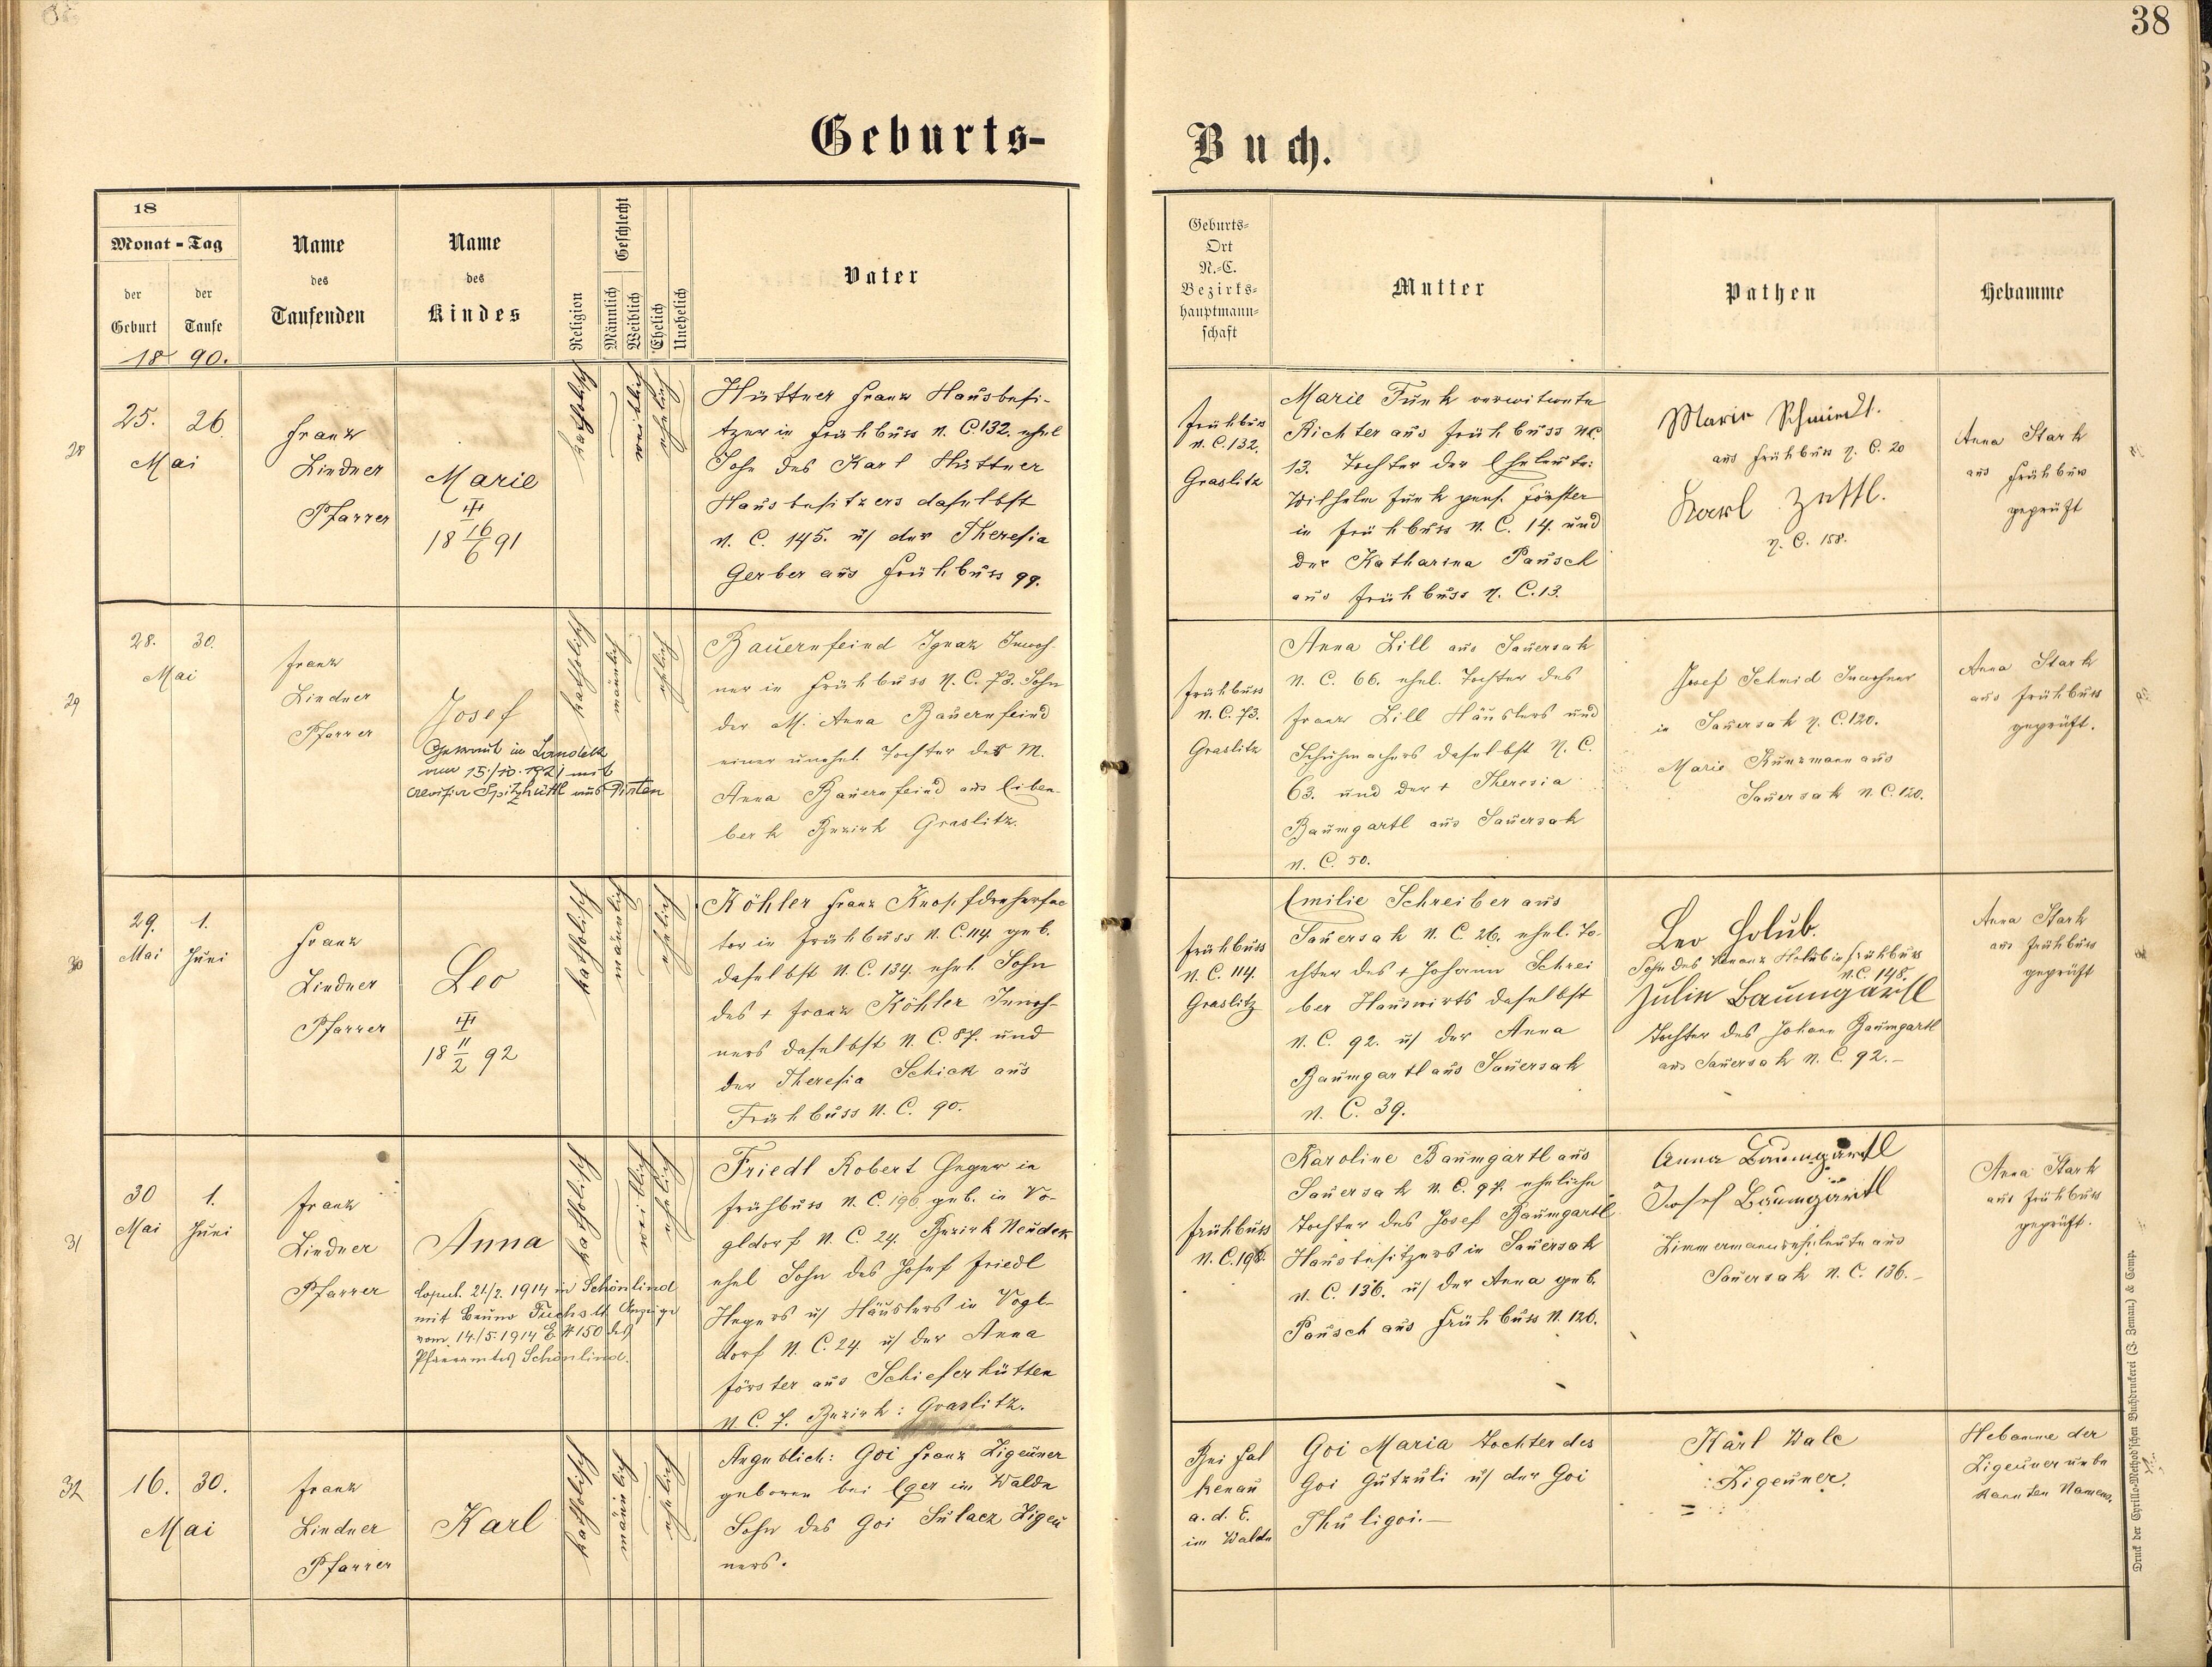 38
Geburts-
Buch.
18
Monat - Tag
der Geburt
der Taufe
18 90.
Name des Taufenden
Name des Kindes
Religion
Geschlecht
Männlich
Weiblich
Ehelich
Unehelich
Vater
Geburts-
Ort
N.-C.
Bezirks-
hauptmann-
schaft
Mutter
Pathen
Hebamme
28
25. 26.
Mai
Franz
Lindner
Pfarrer
Marie
18 16/6 91
katholisch
weiblich
ehelich
Hüttner Franz Hausbesi-
tzer in Frühbuss N. C. 132. ehel
Sohn des Karl Hüttner
Hausbesitzers daselbst
N. C. 145. u/ der Theresia
Gerber aus Frühbuss 99.
Frühbuss
N. C. 132.
Graslitz
Marie Funk verwitwete
Richter aus Frühbuss NC
13. Tochter der Eheleute:
Wilhelm Funk pens. Förster
in Frühbuss N. C. 14. und
der Katharina Pausch
aus Frühbuss N. C. 13.
Marie Schmiedl.
aus Frühbuss N. C. 20
Karl Zettl.
N. C. 158.
Anna Stark
aus Frühbuss
geprüft
29
28. 30.
Mai
Franz
Lindner
Pfarrer
Josef
Getraut in
am 15./10. 1921 mit
Spitzhüttl aus Pirten
katholisch
männlich
ehelich
Bauernfeind Ignaz Inwoh-
ner in Frühbuss N. C. 73. Sohn
der M. Anna Bauernfeind
einer unehel. Tochter der M.
Anna Bauernfeind aus Eiben-
berk Bezirk Graslitz.
Frühbuss
N. C. 73.
Graslitz
Anna Lill aus Sauersak
N. C. 66. ehel. Tochter des
Franz Lill Häuslers und
Schuhmachers daselbst N. C.
63. und der + Theresia
Baumgartl aus Sauersak
N. C. 50.
Josef Schmid Inwohner
in Sauersak N. C. 120.
Marie Kunzmann aus
Sauersak N. C. 120.
Anna Stark
aus Frühbuss
geprüft.
30
29. 1.
Mai Juni
Franz
Lindner
Pfarrer
Leo
18 11/2 92
katholisch
männlich
ehelich
Köhler Franz Knopfdreherfac
tor in Frühbuss N. C. 114. geb.
daselbst N. C. 134. ehel. Sohn
des + Franz Köhler Inwoh-
ners daselbst N. C. 87. und
der Theresia Schick aus
Frühbuss N. C. 90.
Frühbuss
N. C. 114.
Graslitz
Emilie Schreiber aus
Sauersak N. C. 26. ehel. To-
chter des + Johann Schrei
ber Hauswirts daselbst
N. C. 92. u/ der Anna
Baumgartl aus Sauersak
N. C. 39.
Leo Holub.
Sohn des Holub in Frühbuss
N. C. 148.
Julie Baumgärtl
Tochter des Johann Baumgartl
aus Sauersak N. C. 92.-
Anna Stark
aus Frühbuss
geprüft
31
30 1.
Mai Juni
Franz
Lindner
Pfarrer
Anna
Copul. 21/2. 1914 in Schönlind
mit Bruno Fuchs lt Anzeige
vom 14./5. 1914 E # 150 des
Pfarramtes Schönlind.
katholisch
weiblich
ehelich
Friedl Robert Heger in
Frühbuss N. C. 196 geb. in Vo-
gldorf N. C. 24. Bezirk Neudek
ehel Sohn des Josef Friedl
Hegers u/ Häuslers in Vogl-
dorf N. C. 24 u/ der Anna
Förster aus Schieferhütten
N. C. 7. Bezirk: Graslitz.
Frühbuss
N. C. 196.
Karoline Baumgartl aus
Sauersak N. C. 97. eheliche
Tochter des Josef Baumgartl
Hausbesitzers in Sauersak
N. C. 136. u/ der Anna geb.
Pausch aus Frühbuss N. 126.
Anna Baumgärtl
Josef Baumgärtl
Zimmermannseheleute aus
Sauersak N. C. 136.-
Anna Stark
aus Frühbuss
geprüft.
32
16. 30.
Mai
Franz
Lindner
Pfarrer
Karl
katholisch
männlich
ehelich
Angeblich: Goi Franz Zigeuner
geboren bei Eger im Walde
Sohn des Goi Sulacz Zigeu
ners.
Bei Fal
kenau
a. d. E.
im Walde
Goi Maria Tochter des
Goi Gutzuli u/ der Goi
Thuligoi.-
Karl Walc
Zigeuner.
Hebamme der
Zigeuner unbe
kannten Namens.
Druck der Cyrillo-Method'schen Buchdruckerei (J. Zeman) & Comp.